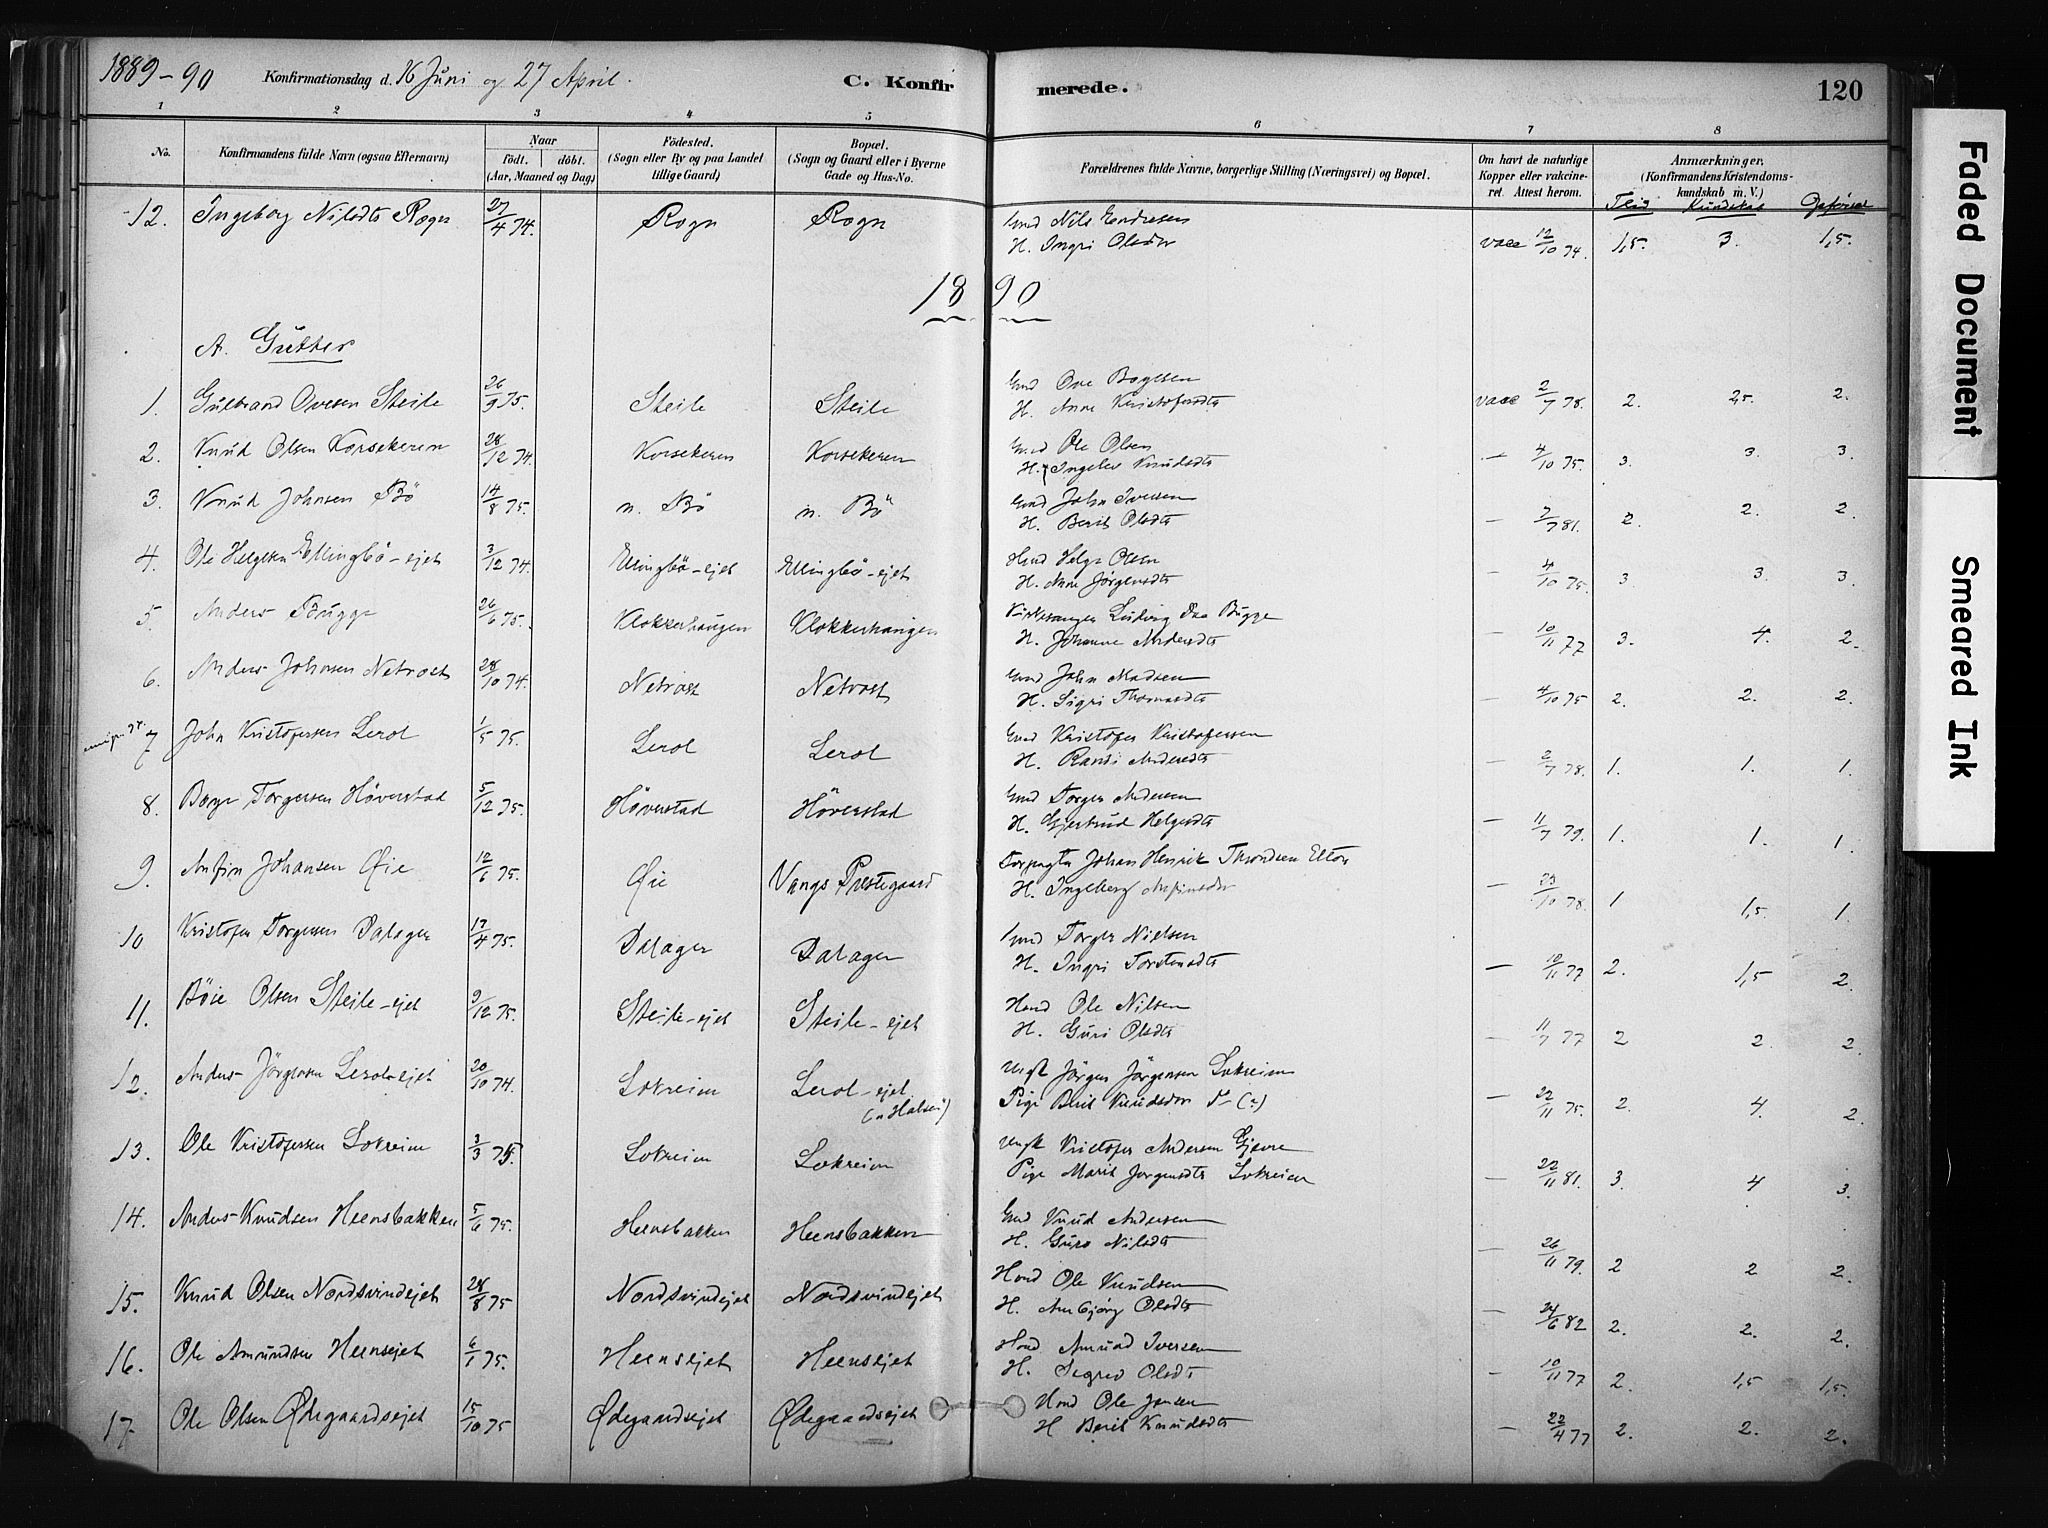 1889-90 Konfirmationsdag d. 16 Juni og 27 April. C. Konfirmerede. 120
1 2 3 4 5 6 7 8
No. Konfirmandens fulde Navn (ogsaa Efternavn) Naar födt. döbt. (Aar, Maaned og Dag) Födested. (Sogn eller By og paa Landet tillige Gaard) Bopæl. (Sogn og Gaard eller i Byerne Gade og Hus-No. Forældrenes fulde Navne, borgerlige Stilling (Næringsvei) og Bopæl. Om havt de naturlige Kopper eller vakcineret. Attest herom. Anmærkninger. (Konfirmandens Kristendomskundskab m. V.)
Flid Kundskab Opförsel
12. Ingeborg Nilsdtr Rogn 27/4 74. Rogn Rogn Gmd Nils Endresen
H. Ingri Olsdr vacc 12/10 74. 1,5. 3. 1,5.
1890
A. Gutter
1. Gulbrand Ovesen Steile 26/9 75. Steile Steile Gmd Ove Bøgesen
H. Anne Kristofersdtr vacc 2/7 78. 2. 2,5. 2.
2. Knud Olsen Korsekeren 28/12 74. Korsekeren Korsekeren Gmd Ole Olsen
H. Ingelev Knudsdtr — 4/10 75. 3. 3. 3.
3. Knud Johnsen Bö 14/8 75. n. Bö n. Bö Gmd John Iversen
H. Berit Olsdtr — 7/7 81. 2. 2. 2.
4. Ole Helgesen Ellingbö-ejet 3/12 74. Ellingbö-ejet Ellingbö-ejet Hmd Helge Olsen
H. Anne Jørgensdtr — 4/10 75. 3 3. 3.
5. Anders Bugge 26/6 75. Klokkerhaugen Klokkerhaugen Kirkesanger Ludvig Daa Bugge
H. Johanne Andersdtr — 10/11 77 3. 4. 2.
6. Anders Johnsen Netrost 28/10 74. Netrost Netrost Gmd John Madsen
H. Sigri Thomasdtr — 4/10 75 2. 2. 2.
7 John Kristofersen Lerol 1/5 75. Lerol Lerol Gmd Kristofer Kristofersen
H. Randi Andersdtr — 2/7 78. 1. 1. 1.
8. Børge Torgersen Höverstad 5/12 75. Höverstad Höverstad Gmd Torger Andersen
H. Gjertrud Helgesdtr — 11/7 79. 1. 1. 1.
9. Anfin Johansen Øie 12/6 75. Øie Vangs Prestegaard Forpagter Johan Henrik Throndsen Elton
H. Ingeborg Anfinsdr — 29/10 78. 1 1,5. 1.
10 Kristofer Torgersen Dalager 17/4 75. Dalager Dalager Gmd Torger Nielsen
H. Ingri Torstensdtr — 10/11 77 2. 1,5 2.
11. Böie Olsen Steile-ejet 9/12 75. Steile-ejet Steile-ejet Hmd Ole Nilsen
H. Guri Olsdtr — 11/7 77 2 2. 2.
12. Anders Jörgensen Lerol-ejet 20/10 74. Lokreim Lerol-ejet Ungk Jörgen Jörgensen Lokreim
(n Halsen) Pige Berit Knudsdr S- (?) — 22/11 75. 2. 4. 2.
13. Ole Kristofersen Lokreim 3/3 75. Lokreim Lokreim Ungk Kristofer Andersen Gjevre
Pige Marit Jorgensdtr Lokreim — 22/11 81. 3. 4 3.
14. Anders Knudsen Heensbakken 5/6 75. Heensbakken Heensbakken Gmd Knud Andersen
H. Guro Nilsdtr — 26/11 79. 2 2 2.
15. Knud Olsen Nordsvindejet 28/8 75 Nordsvindejet Nordsvindejet Hmd Ole Knudsen
H. Anbjörg Olsdtr — 24/6 82 2. 2. 2.
16. Ole Amundsen Heensejet 6/1 75. Heensejet Heensejet Hmd Amund Iversen
H. Segred Olsdtr — 10/11 77 2. 1,5 1,5.
17. Ole Olsen Ødegaardsejet 15/10 75 Ødegaardsejet Ødegaardsejet Hmd Ole Jensen
H Berit Knudsdtr — 22/4 77 2. 2. 2.
Faded Document
Smeared Ink